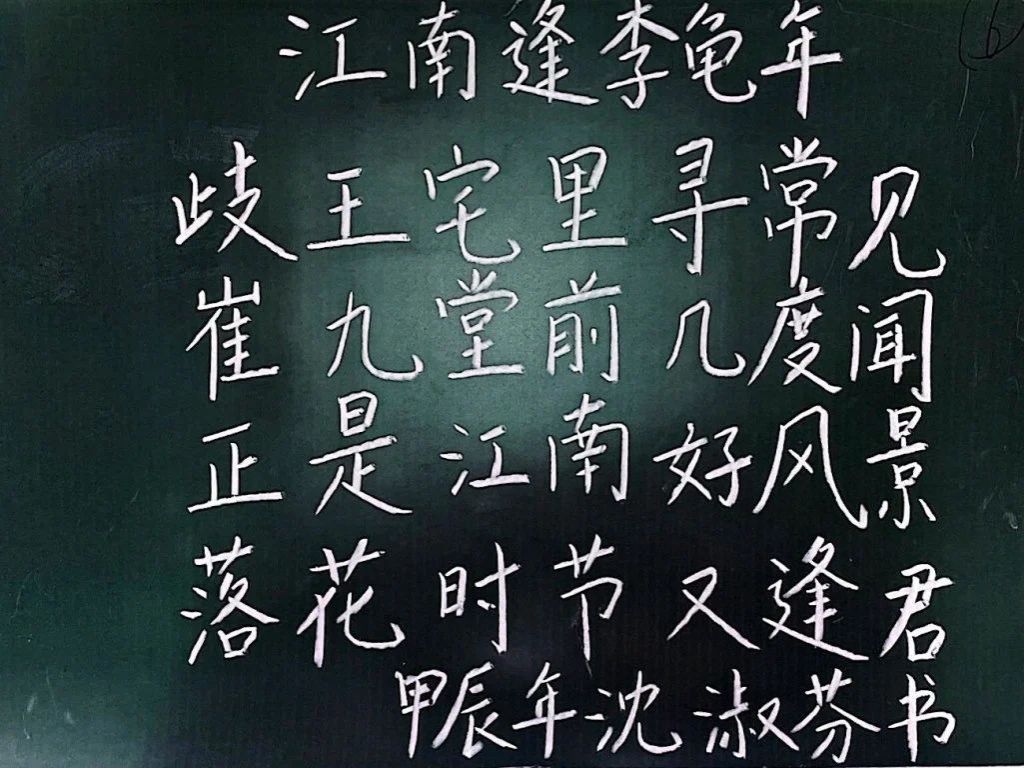 江南逢李龟年
歧王宅里寻常见
崔九堂前几度闻
正是江南好风景
落花时节又逢君
甲辰年沈淑芬书